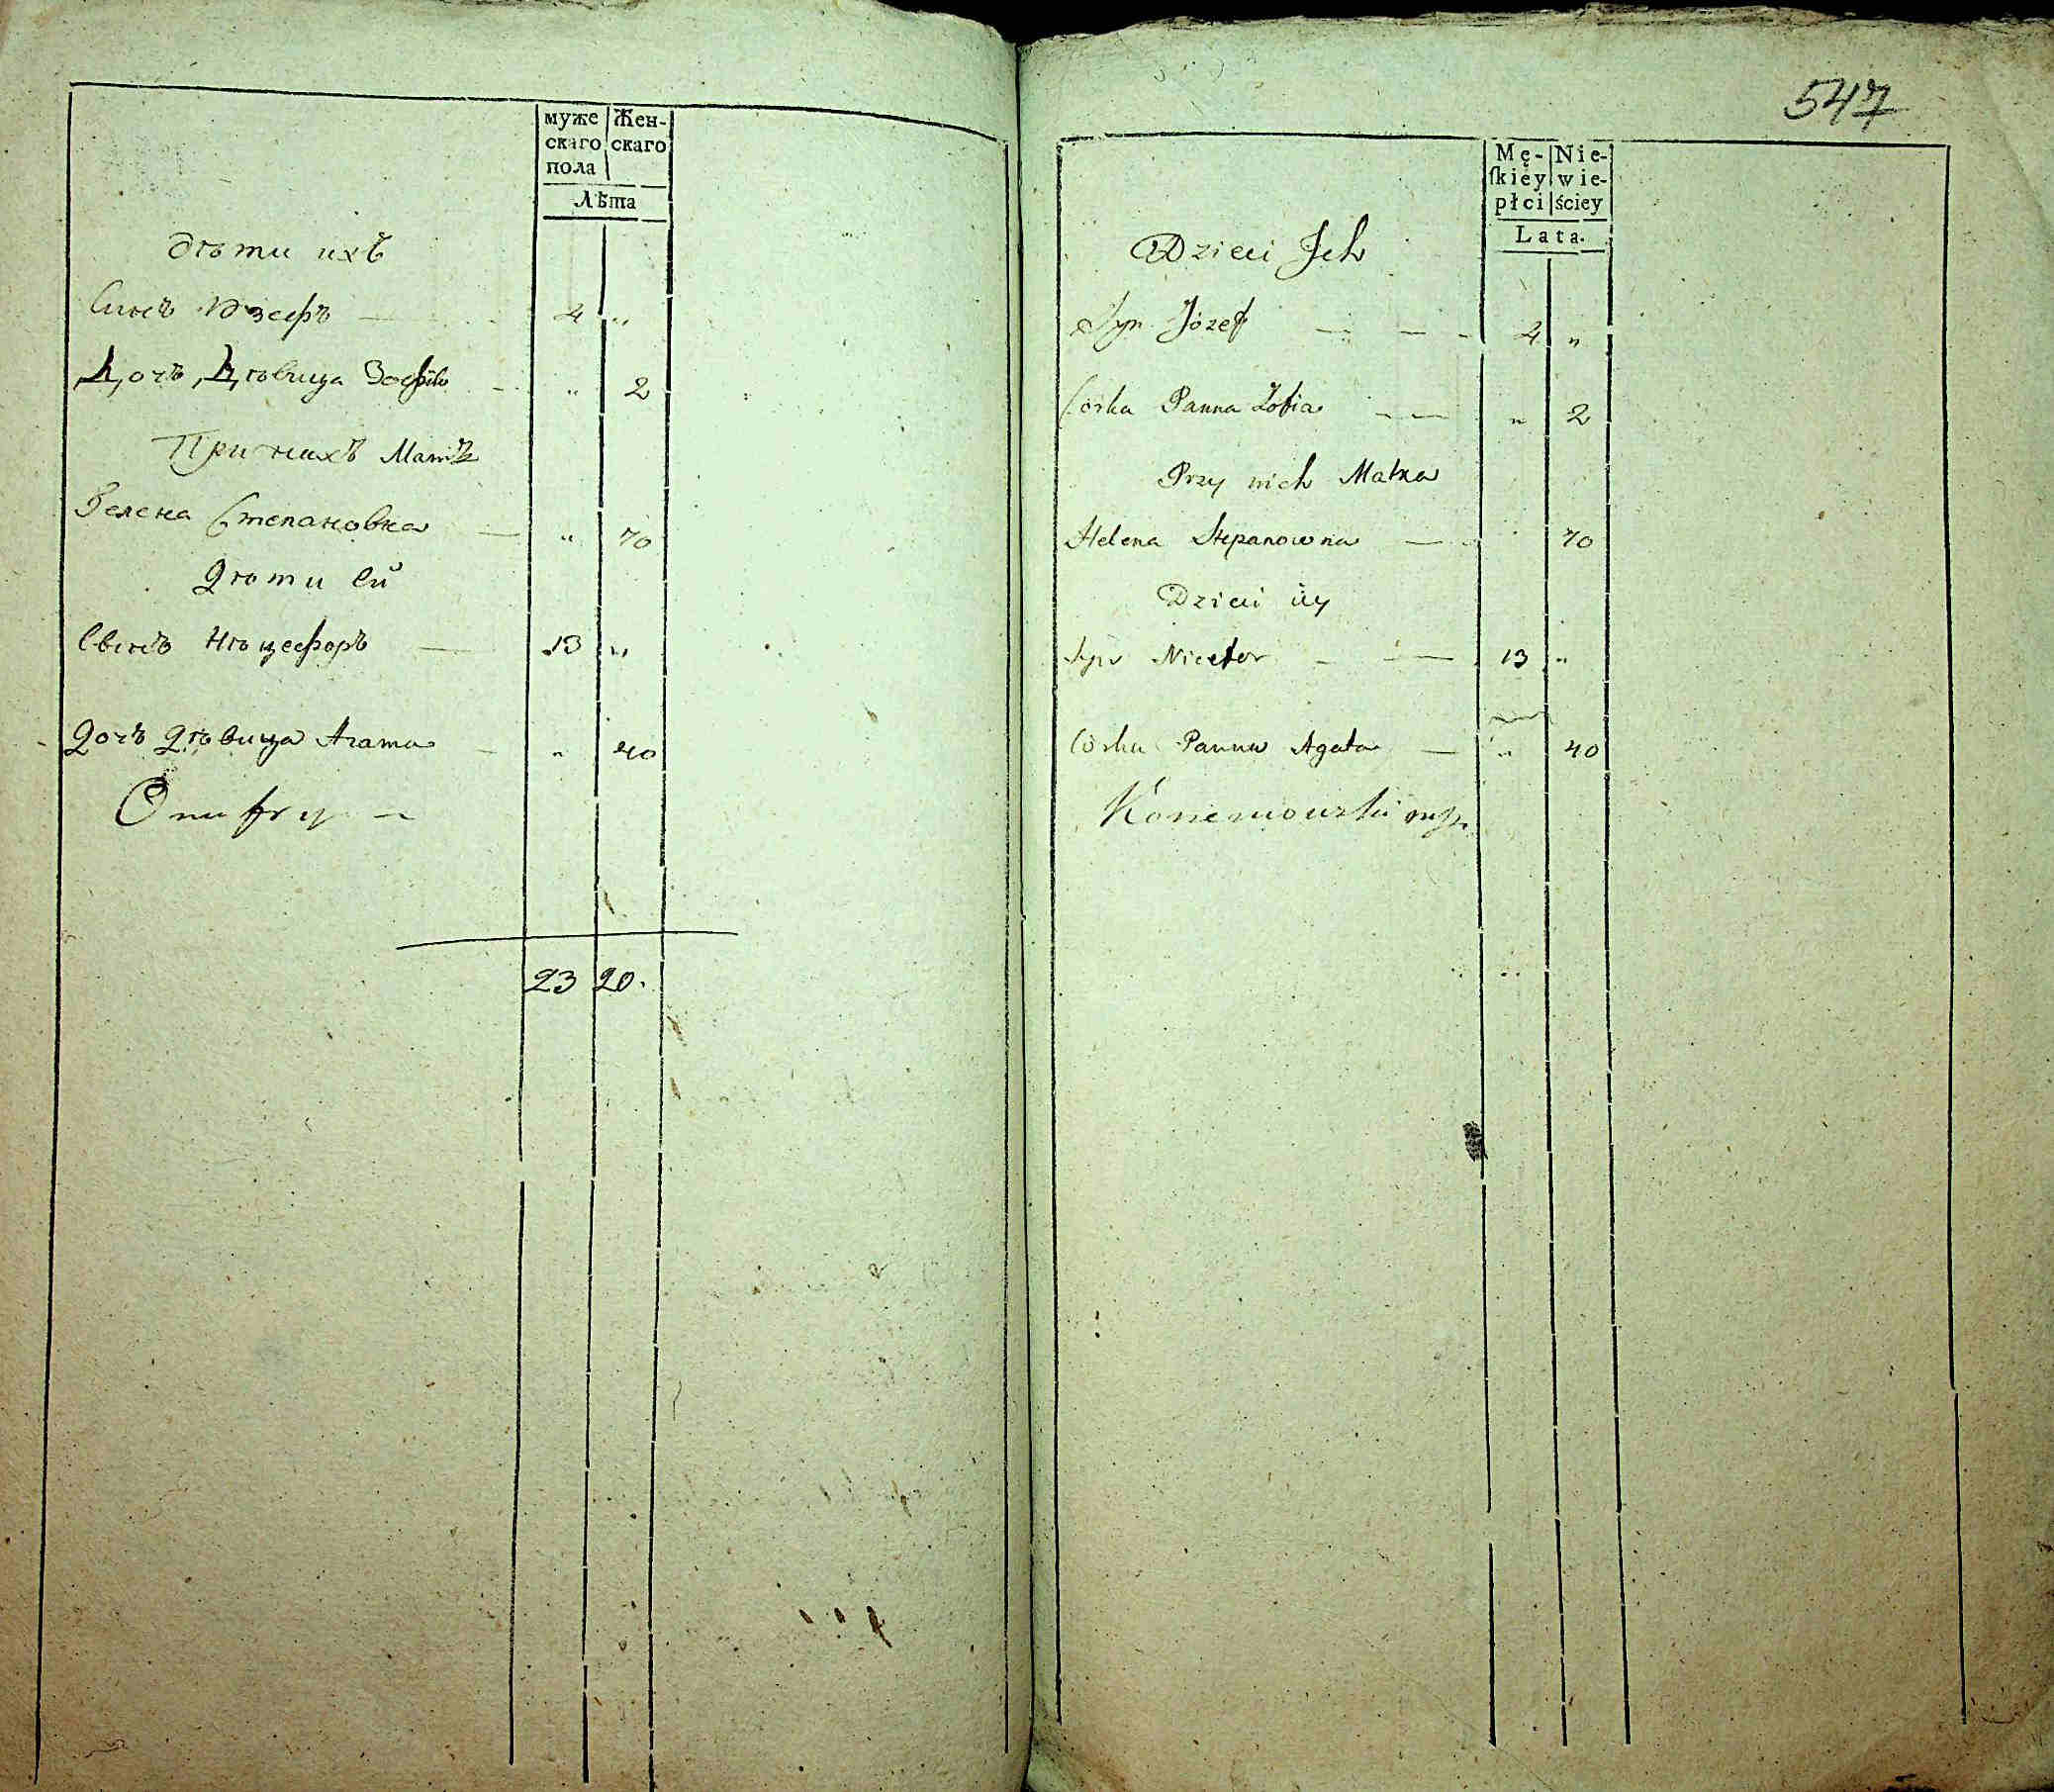 муже
скаго
пола
Жен-
скаго
Лѣта
Дѣти ихъ
Синъ Юзефъ 4 "
Дочъ Дѣвица Зофія " 2
При нихъ Матка
Гелена Степановна " 70
Дѣти ей
Сынъ Нѣцефоръ 13 "
Дочъ Дѣвица Агата " 40
Onufry
23 20.
547
Mę-
ſkiey
płci
Nie-
wie-
ściey
Lata.
Dzieci Jch
Syn Józef 4 "
Córka Panna Zofia " 2
Przy nich Matka
Helena Stepanowna 70
Dzieci iey
Syn Nicefor 13 "
Córka Panna Agata " 40